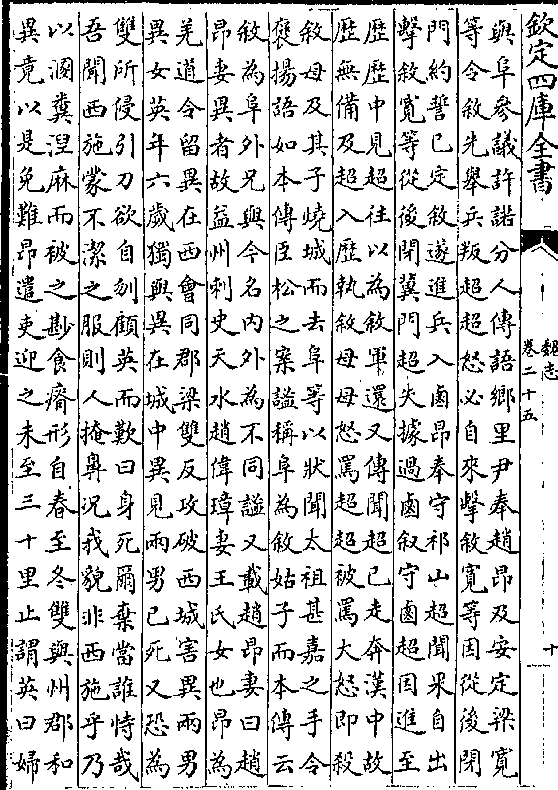 欽定四庫全書
魏志
卷二十五
十
與阜參議許諾分人傳語鄉里尹奉趙昂及安定梁寛
等令敘先舉兵叛超超怒必自來擊敘寛等因從後閉
門約誓已定敘遂進兵入鹵昂奉守祁山超聞果自出
擊敘寛等從後閉冀門超失據過鹵叙守鹵超因進至
歷歷中見超往以為敘軍還又傳聞超已走奔漢中故
歷無備及超入歷執敘母母怒罵超超被罵大怒即殺
敘母及其子燒城而去阜等以狀聞太祖甚嘉之手令
襃揚語如本傳臣松之案謐稱阜為敘姑子而本傳云
敘為阜外兄與今名内外為不同謐又載趙昂妻曰趙
昂妻異者故益州刺史天水趙偉璋妻王氏女也昂為
羌道令留異在西會同郡梁雙反攻破西城害異兩男
異女英年六歲獨與異在城中異見兩男已死又恐為
雙所侵引刀欲自刎顧英而歎曰身死爾棄當誰恃哉
吾聞西施蒙不潔之服則人掩鼻況我貌非西施乎乃
以溷糞涅麻而被之尠食瘠形自春至冬雙與州郡和
異竟以是免難昂遣吏迎之未至三十里止謂英曰婦